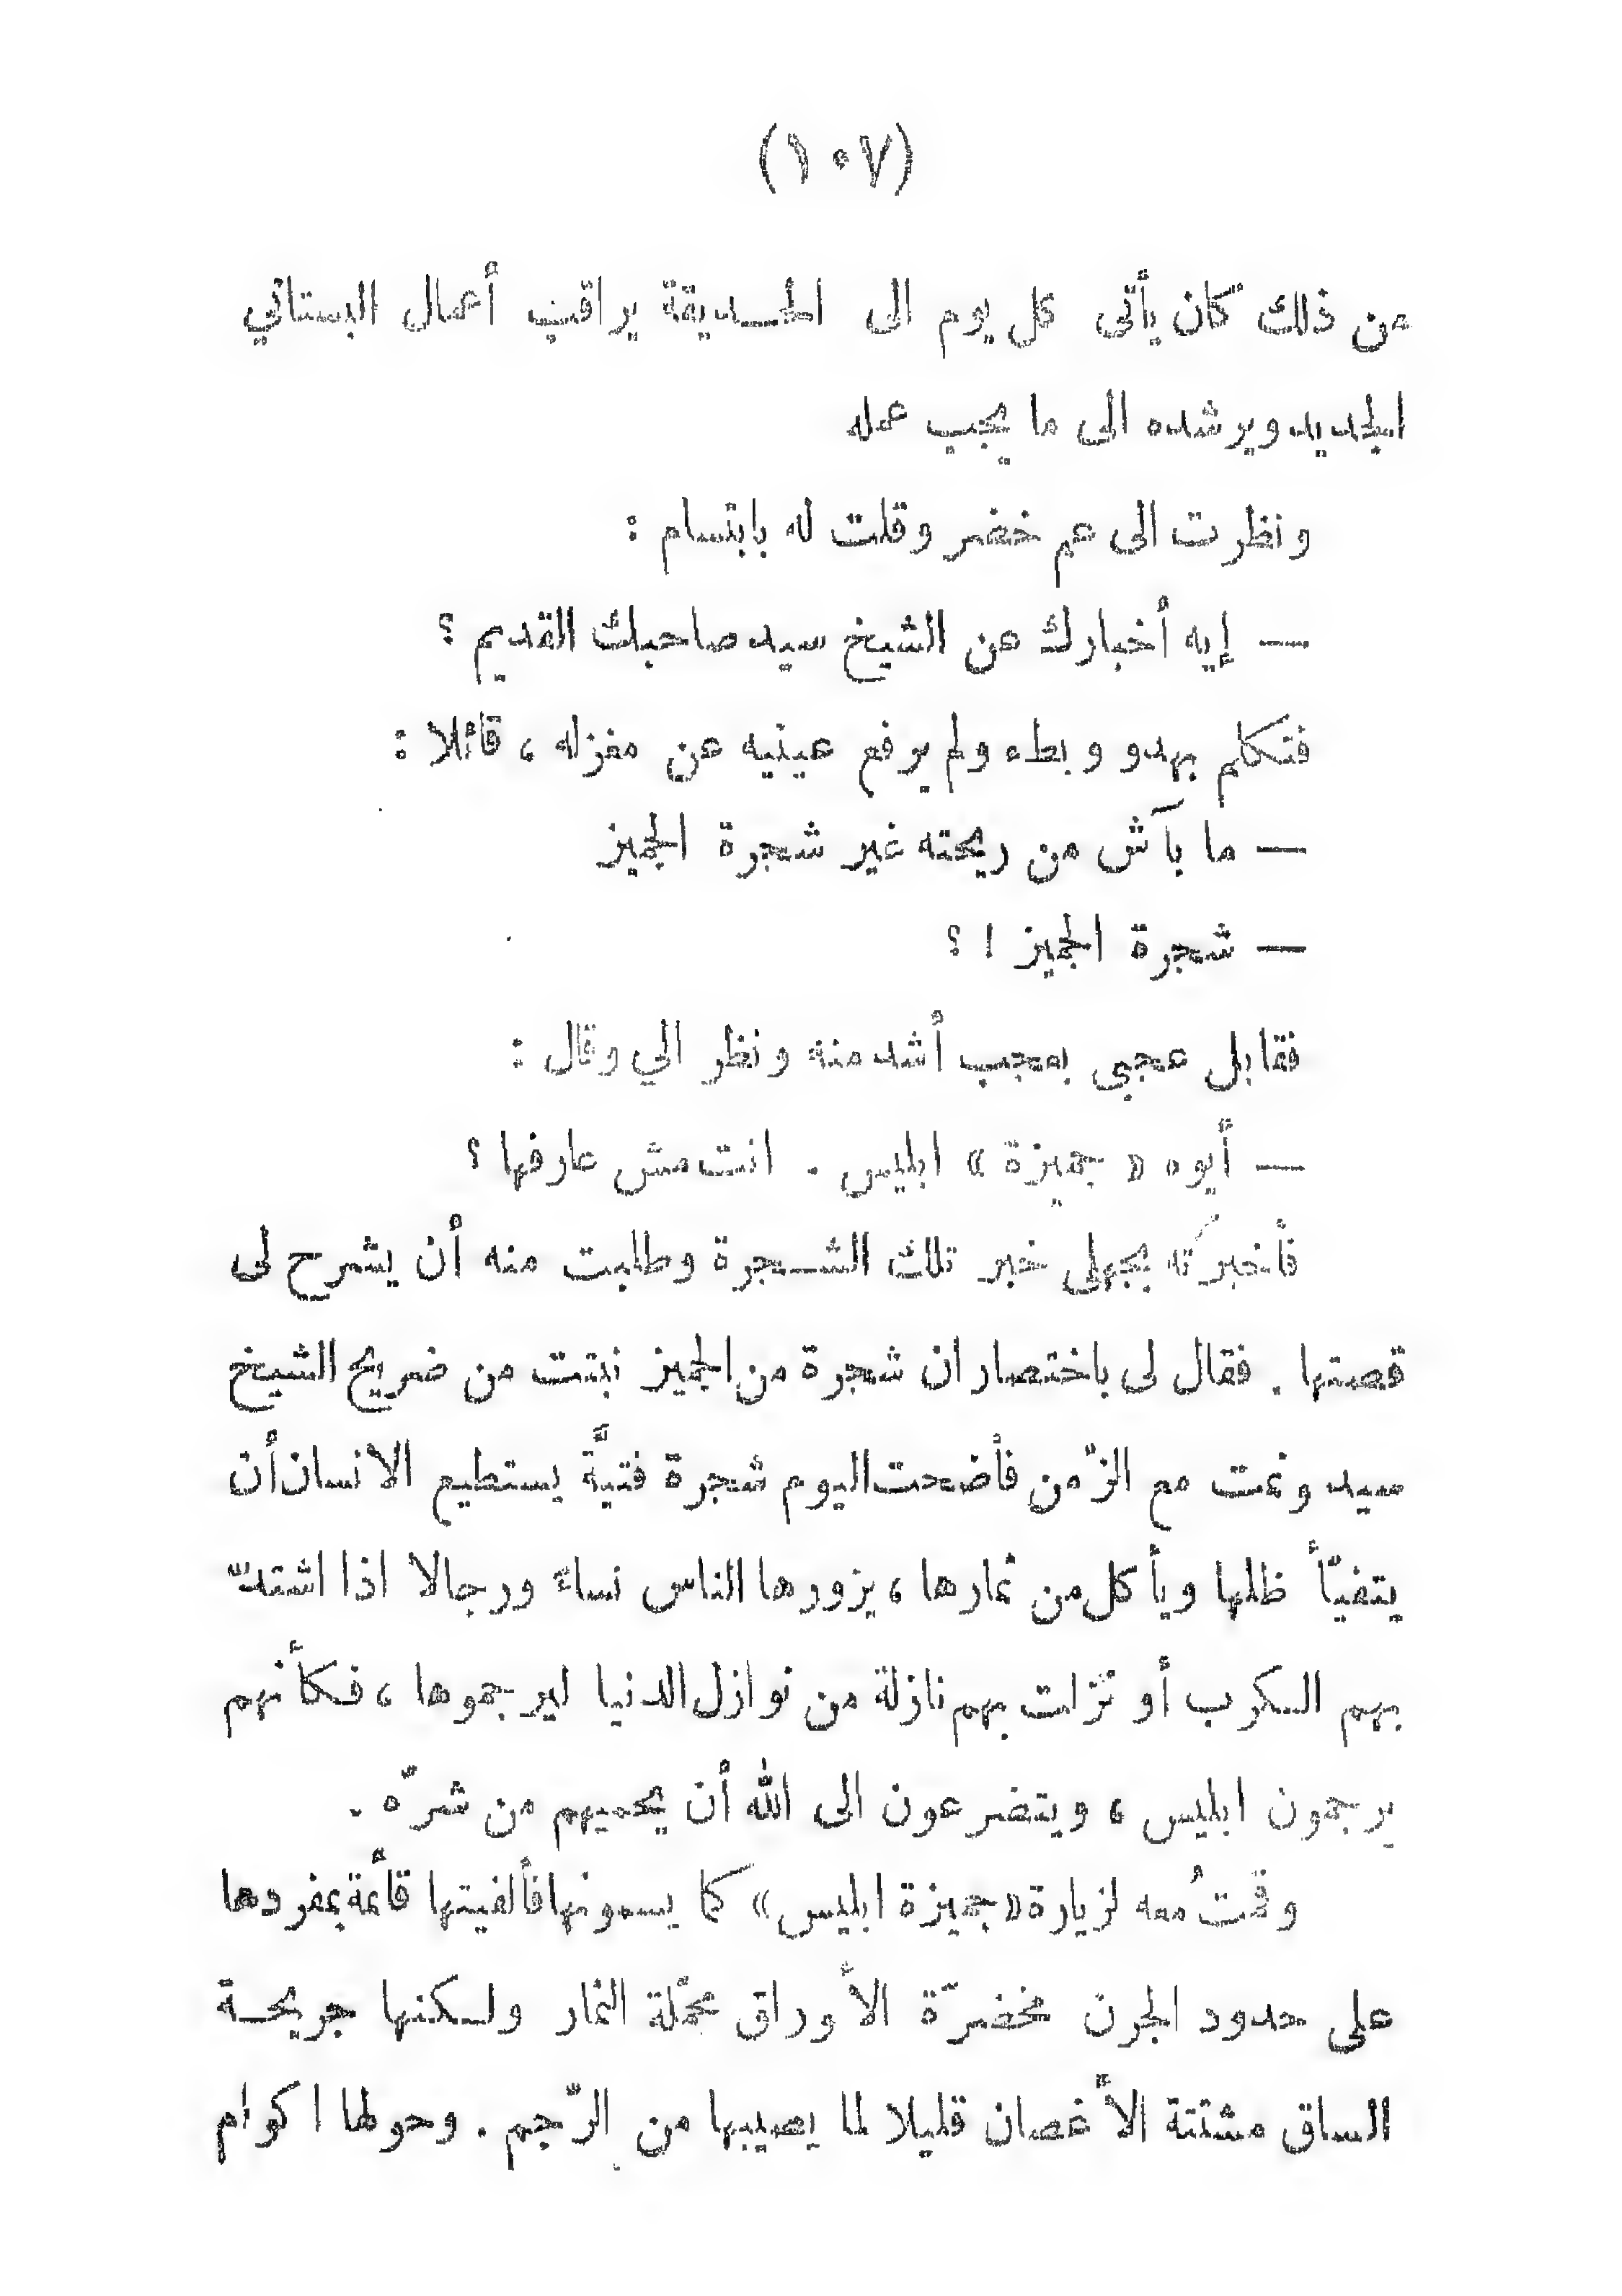 (١٠٧)
من ذلك كان يأتى كل يوم الى الحديقة يراقب أعمال البستاني
الجديد ويرشده الى ما يجب عمله
ونظرت الى عم خضر وقلت له بابتسام :
— إيه أخبارك عن الشيخ سيد صاحبك القديم ؟
فتكلم بهدو وبطء ولم يرفع عينيه عن مغزله ، قائلا :
— ما بآش من ريحته غير شجرة الجميز
— شجرة الجميز ! ؟
فقابل عجبى بعجب أشد منه ونظر الي وقال :
— أيوه « جميزة » ابليس . انت مش عارفها ؟
فأخبرته بجهلى خبر تلك الشجرة وطلبت منه أن يشرح لى
قصتها . فقال لى باختصار ان شجرة من الجميز نبتت من ضريح الشيخ
سيد ونمت مع الزّمن فأضحت اليوم شجرة فتيَّة يستطيع الانسان أن
يتفيّأ ظلها ويأكل من ثمارها ، يزورها الناس نساءً ورجالا اذا اشتدّ
بهم الكرب أو نزلت بهم نازلة من نوازل الدنيا ليرجموها ، فكأنهم
يرجمون ابليس ، ويتضرعون الى الله أن يحميهم من شرّه .
وقمتُ معه لزيارة «جميزة ابليس» كما يسمونها فألفيتها قائمة بمفردها
على حدود الجرن مخضرّة الأوراق محمّلة الثمار ولكنها جريحة
الساق مشتتة الأغصان قليلا لما يصيبها من الرّجم . وحولها اكوام